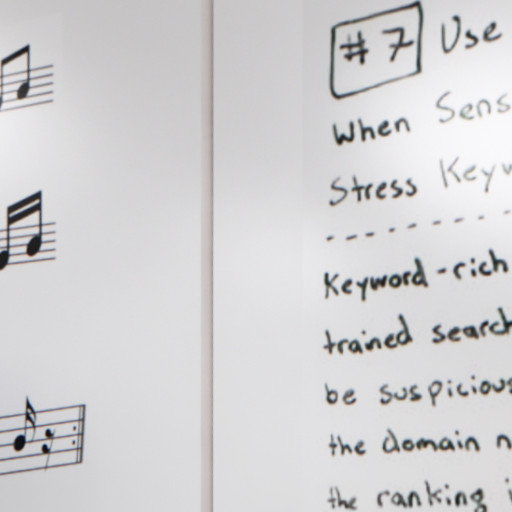 #7 Use
When Sens
Stress Keyw
Keyword-rich
trained search
be suspicious
the domain n
the ranking i